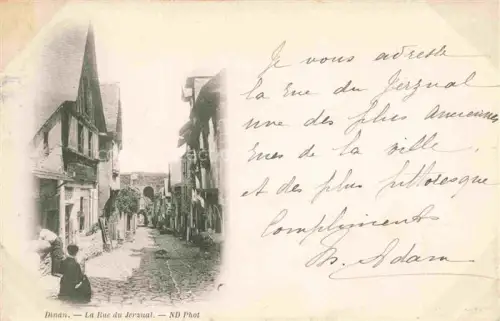 Je vous adresse
la rue du Jerzual
une des plus anciennes
rues de la ville
et des plus pittoresque
Compliments
Adam
Dinan. — La Rue du Jerzual. — ND Phot